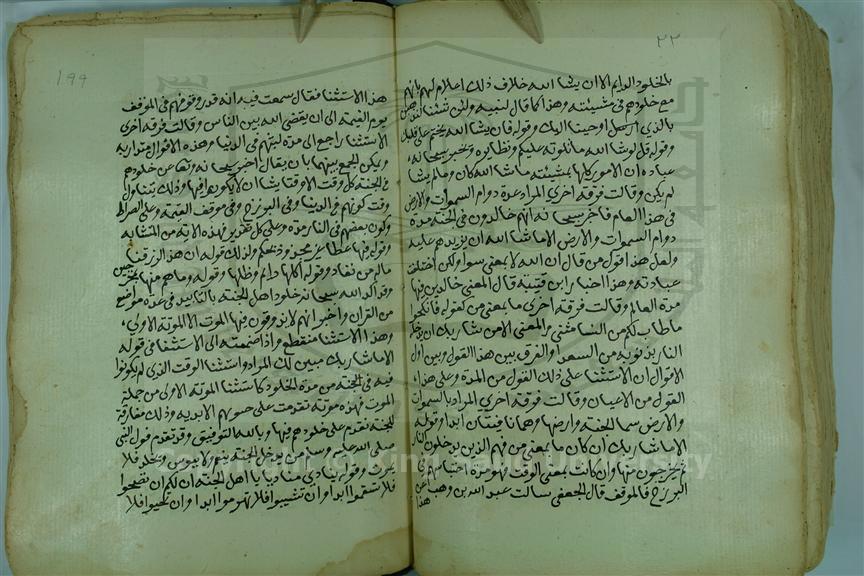 ٢٢
بالخلود الدايم الا ان يشا الله خلاف ذلك اعلام لهم بانهم
مع خلودهم في مشيئته وهذا كما قال لنبيه ولئن شئنا لنذهبن
بالذي اوحينا اليك وقوله فان يشا الله يختم على قلبك
وقوله قل لو شا الله ما تلوته عليكم ونظايره يخبر سبحانه
عباده ان الامور كلها بمشيئته ما شا الله كان وما لم يشا
لم يكن وقالت فرقة اخري المراد مدة دوام السموات والارض
في هذا العالم فاخبر سبحانه انهم خالدون في الجنة مدة
دوام السموات والارض الا ما شا الله ان يزيدهم عليه
ولعل هذا قول من قال ان الا بمعنى سوا ولكن اختلفت
عبارته وهذا اختيار ابن قتيبة قال المعنى خالدين فيها
مدة العالم وقالت فرقة اخري ما بمعنى من كقوله فانكحوا
ما طاب لكم من النسا مثنى والمعنى الا من شا ربك ان يدخله
النار بذنوبه من السعدا والفرق بين هذا القول وبين اول
الاقوال ان الاستثنا على ذلك القول من المدة وعلى هذا
القول من الاعيان وقالت فرقة اخري المراد بالسموات
والارض سما الجنة وارضها وهما باقيتان ابدا وقوله
الا ما شا ربك ان كان ما بمعنى من فهم الذين يدخلون النار
ثم يخرجون منها وان كانت بمعنى الوقت فهو مدة احتباسهم في
البرزخ والموقف قال الجعفي سالت عبد الله بن وهب عن
هذا
١٩٩
هذا الاستثنا فقال سمعت فيه انه قدر وقوفهم في الموقف
يوم القيمة الى ان يقضى الله بين الناس وقالت فرقة اخرى
الاستثنا راجع الى مدة لبثهم في الدنيا وهذه الاقوال متقاربة
ويمكن الجمع بينها بان يقال اخبر سبحانه وتعا عن خلودهم
في الجنة كل وقت الا وقتا يشا ان لا يكونوا فيها وذلك يتناول
وقت كونهم في الدنيا وفي البرزخ وفي موقف القيمة وعلى الصراط
وكون بعضهم في النار مدة وعلى كل تقدير فهذه الاية من المتشابه
وقوله فيها عطا غير مجذوذ محكم ولذلك قوله ان هذا لرزقنا
ماله من نفاد وقوله اكلها دايم وظلها وقوله وما هم منها بمخرجين
وقد اكد الله سبحانه خلود اهل الجنة بالتابيد في عدة مواضع
من القران واخبر انهم لا يذوقون فيها الموت الا الموتة الاولى،
وهذا الاستثنا منقطع واذا ضممته الى الاستثنا في قوله
الا ما شا ربك تبين لك المراد واستثنا الوقت الذي لم يكونوا
فيه في الجنة من مدة الخلود كاستثنا الموتة الاولى من جملة
الموت فهذه موتة تقدمت على حيوتهم الابدية وذلك مفارقة
للجنة تقدم على خلودهم فيها وبالله التوفيق وقد تقدم قول النبي
صلى الله عليه وسلم من يدخل الجنة ينعم ولا يبوس ويخلد فلا
يموت وقوله ينادي مناد يا اهل الجنة ان لكم ان تصحوا
فلا تسقموا ابدا وان تشيبوا فلا تهرموا ابدا وان تحيوا فلا
Copyright © King Saud University